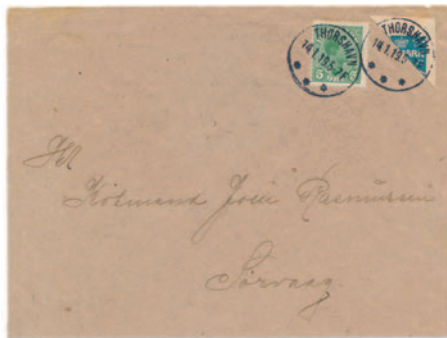 THORSHAVN
14.1.19.5-7E
5 ØRE
THORSHAVN
14.1.19.5
Hr
Købmand Joen Rasmussen
Sørvaag.